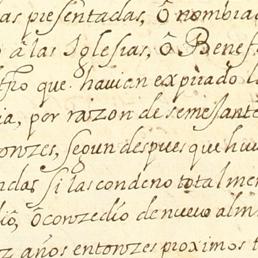 as presentadas, ô nombia
o â las Iglesias, ô Benef
tro que havian expirado la
ia, por raizon de semejante
tonzes, segun despues que huu
ndas si las condeno total men
diô, ô conzedio de nuevo al m
z años entonzes proximos t